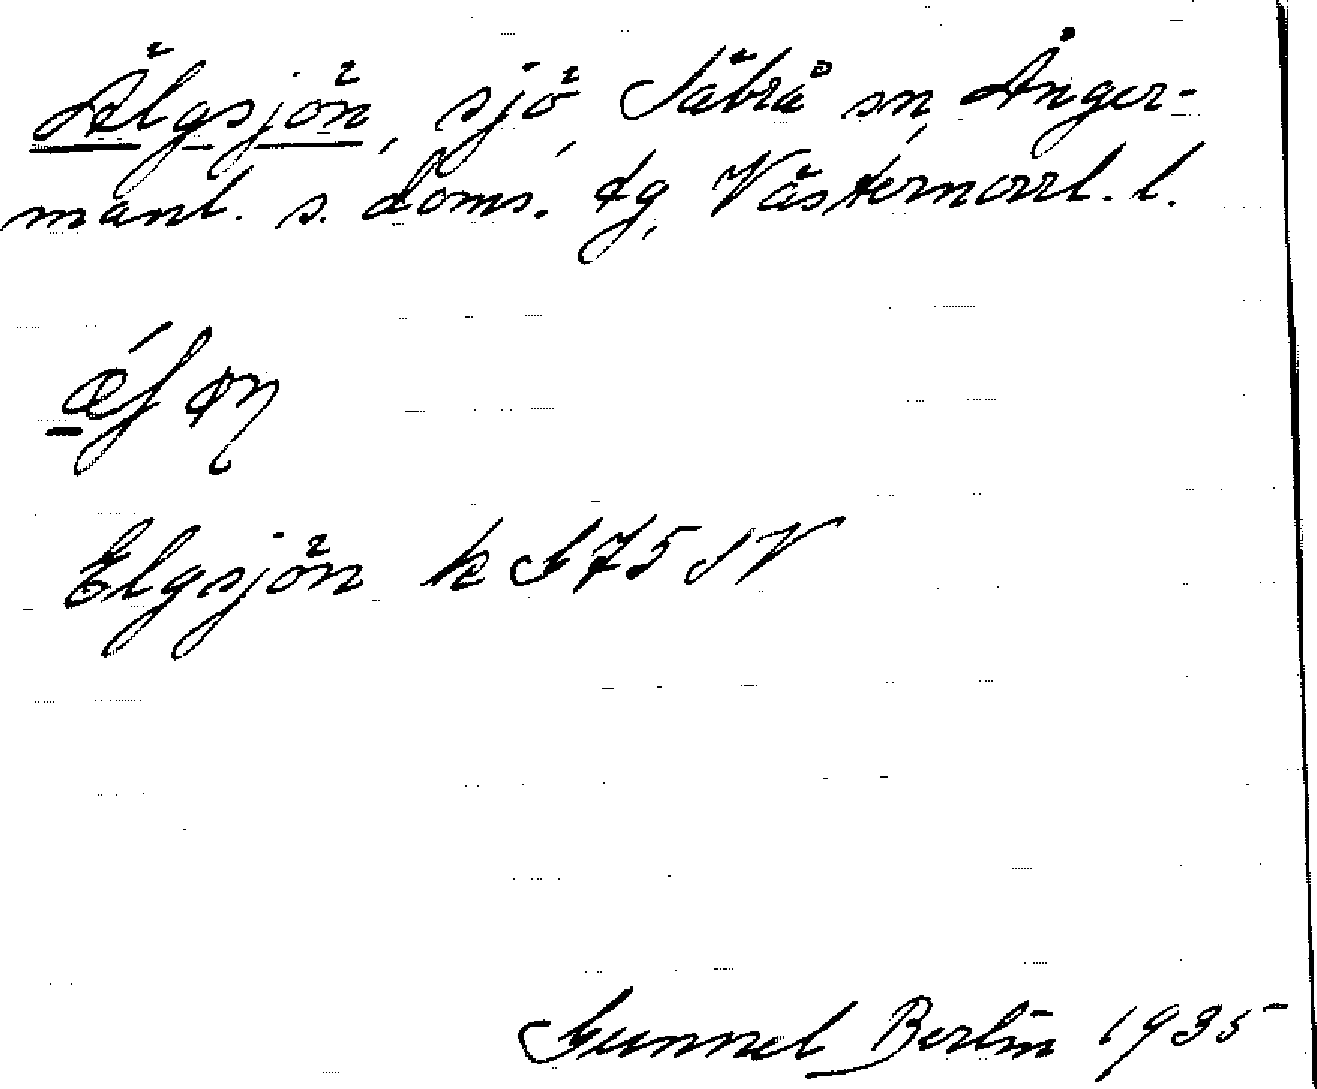 Älgsjön, sjö, Säbrå sn, Ånger-
manl. s. doms. tg, Västernorrl. l.
Elgsjön k G 75 SV
Gunnel Berlin 1935